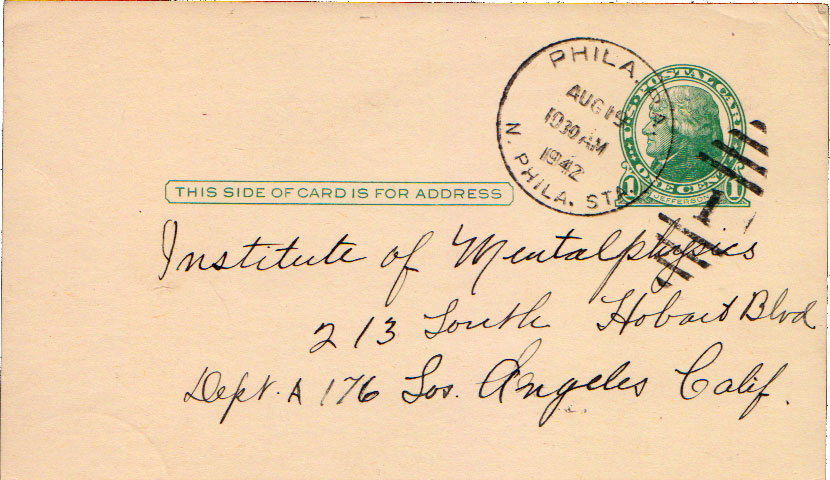 PHILA. PA.
AUG 19
10 30 AM
1942
N. PHILA. STA.
U.S. POSTAL CARD
1 ONE CENT 1
JEFFERSON
1
THIS SIDE OF CARD IS FOR ADDRESS
Institute of Mentalphysics
213 South Hobart Blvd
Dept. A 176 Los. Angeles Calif.